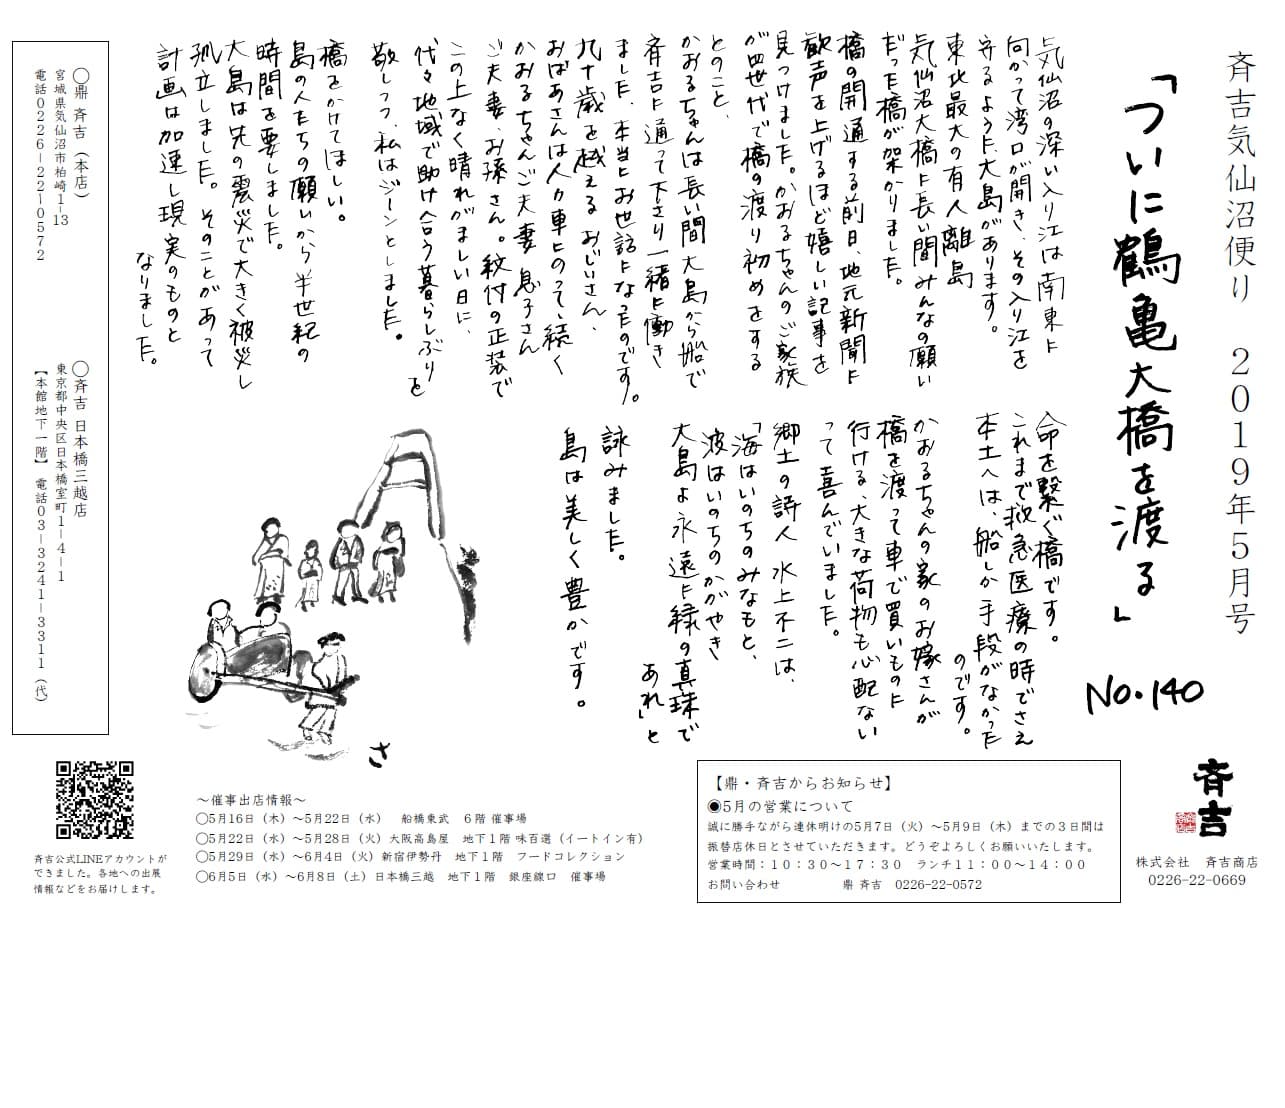 斉吉気仙沼便り　2019年5月号
「ついに鶴亀大橋を渡る」
No.140
気仙沼の深い入り江は南東に
向かって湾口が開き、その入り江を
守るように、大島があります。
東北最大の有人離島
気仙沼大橋に長い間みんなの願い
だった橋が架かりました。
橋の開通する前日、地元新聞に
歓声を上げるほど嬉しい記事を
見つけました。かおるちゃんのご家族
が四世代で橋の渡り初めをする
とのこと、
かおるちゃんは長い間大島から船で
斉吉に通って下さり一緒に働き
ました、本当にお世話になったのです。
九十歳を越えるおじいさん、
おばあさんは人力車にのって、続く
かおるちゃんご夫妻、息子さん
ご夫妻、お孫さん。紋付の正装で
この上なく晴れがましい日に、
代々地域で助け合う暮らしぶりを
敬しつつ、私はジーンとしました。
橋をかけてほしい。
島の人たちの願いから半世紀の
時間を要しました。
大島は先の震災で大きく被災し
孤立しました。そのことがあって
計画は加速し現実のものと
なりました。
命を繋ぐ橋です。
これまで救急医療の時でさえ
本土へは、船しか手段がなかった
のです。
かおるちゃんの家のお嫁さんが
橋を渡って車で買いものに
行ける、大きな荷物も心配ない
って喜んでいました。
郷土の詩人 水上不二は、
「海はいのちのみなもと、
波はいのちのかがやき
大島よ永遠に緑の真珠で
あれ」と
詠みました。
島は美しく豊かです。
さ
◯鼎 斉吉（本店）
宮城県気仙沼市柏崎1-13
電話0226-22-0572
◯斉吉 日本橋三越店
東京都中央区日本橋室町1-4-1
【本館地下一階】 電話03-3241-3311（代）
斉吉公式LINEアカウントが
できました。各地への出展
情報などをお届けします。
～催事出店情報～
◯5月16日（木）～5月22日（水）　船橋東武　6階 催事場
◯5月22日（水）～5月28日（火）大阪高島屋　地下1階 味百選（イートイン有）
◯5月29日（水）～6月4日（火）新宿伊勢丹　地下1階　フードコレクション
◯6月5日（水）～6月8日（土）日本橋三越　地下1階　銀座線口　催事場
【鼎・斉吉からお知らせ】
◉5月の営業について
誠に勝手ながら連休明けの5月7日（火）～5月9日（木）までの3日間は
振替店休日とさせていただきます。どうぞよろしくお願いいたします。
営業時間：10：30～17：30　ランチ11：00～14：00
お問い合わせ　鼎 斉吉　0226-22-0572
斉吉
株式会社　斉吉商店
0226-22-0669